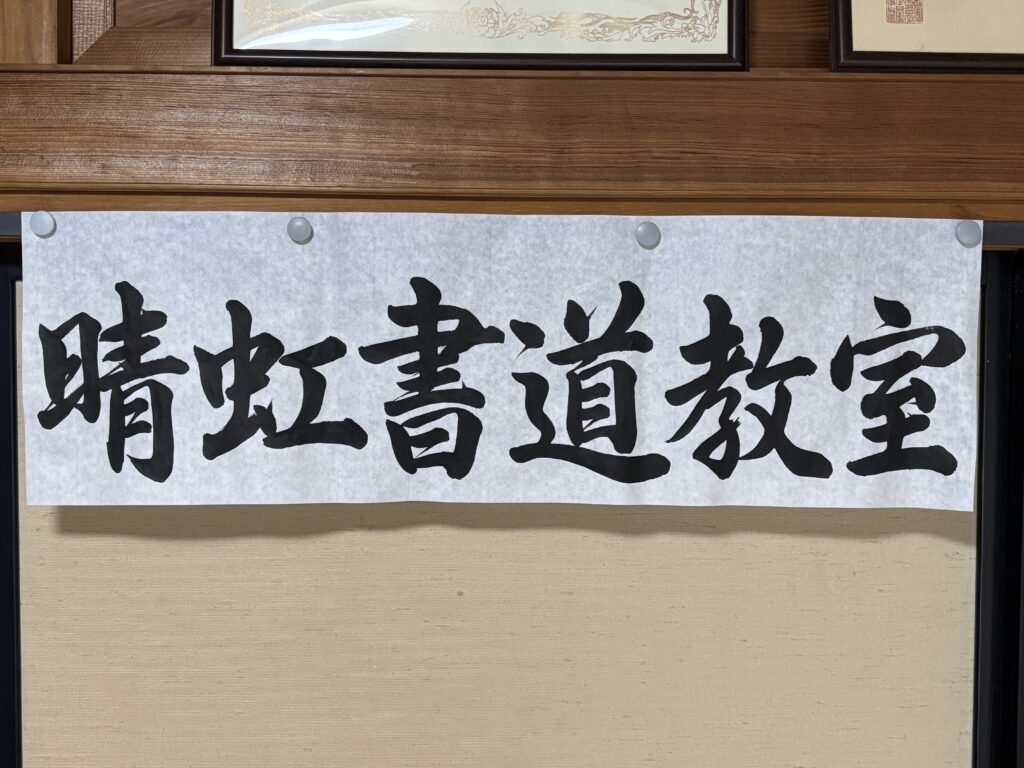 晴虹書道教室